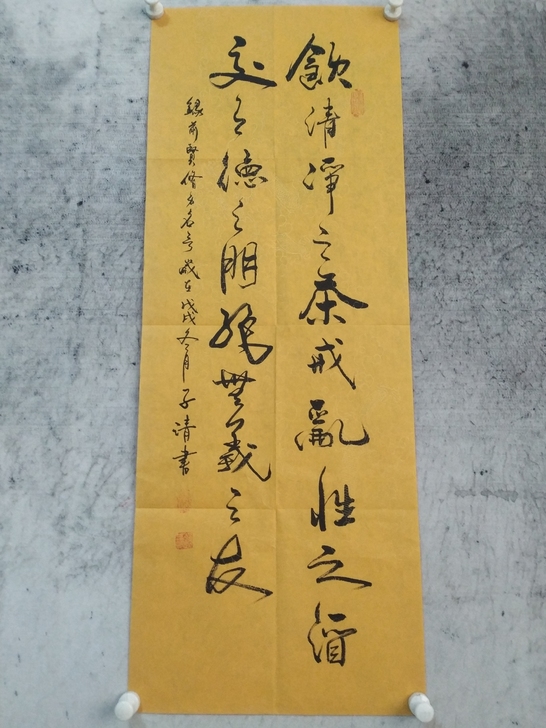 飲清淨之茶戒亂性之酒
交有德之朋絕無義之友
録前賢脩身名言歲在戊戌冬月子清書